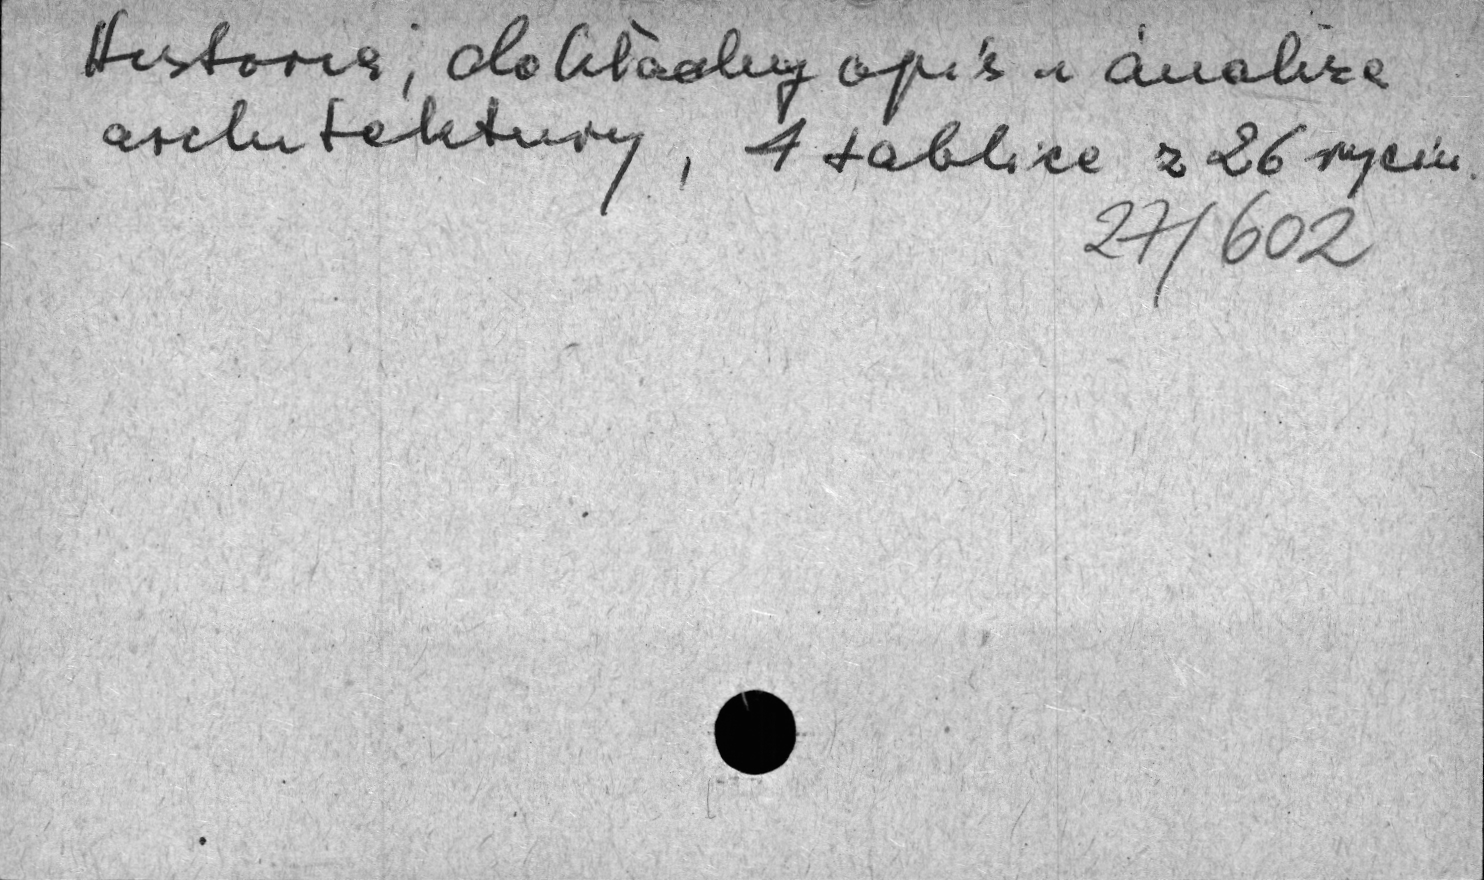 Historia, dokładny opis i analiza
architektury, 4 tablice z 26 rycin.
27/602